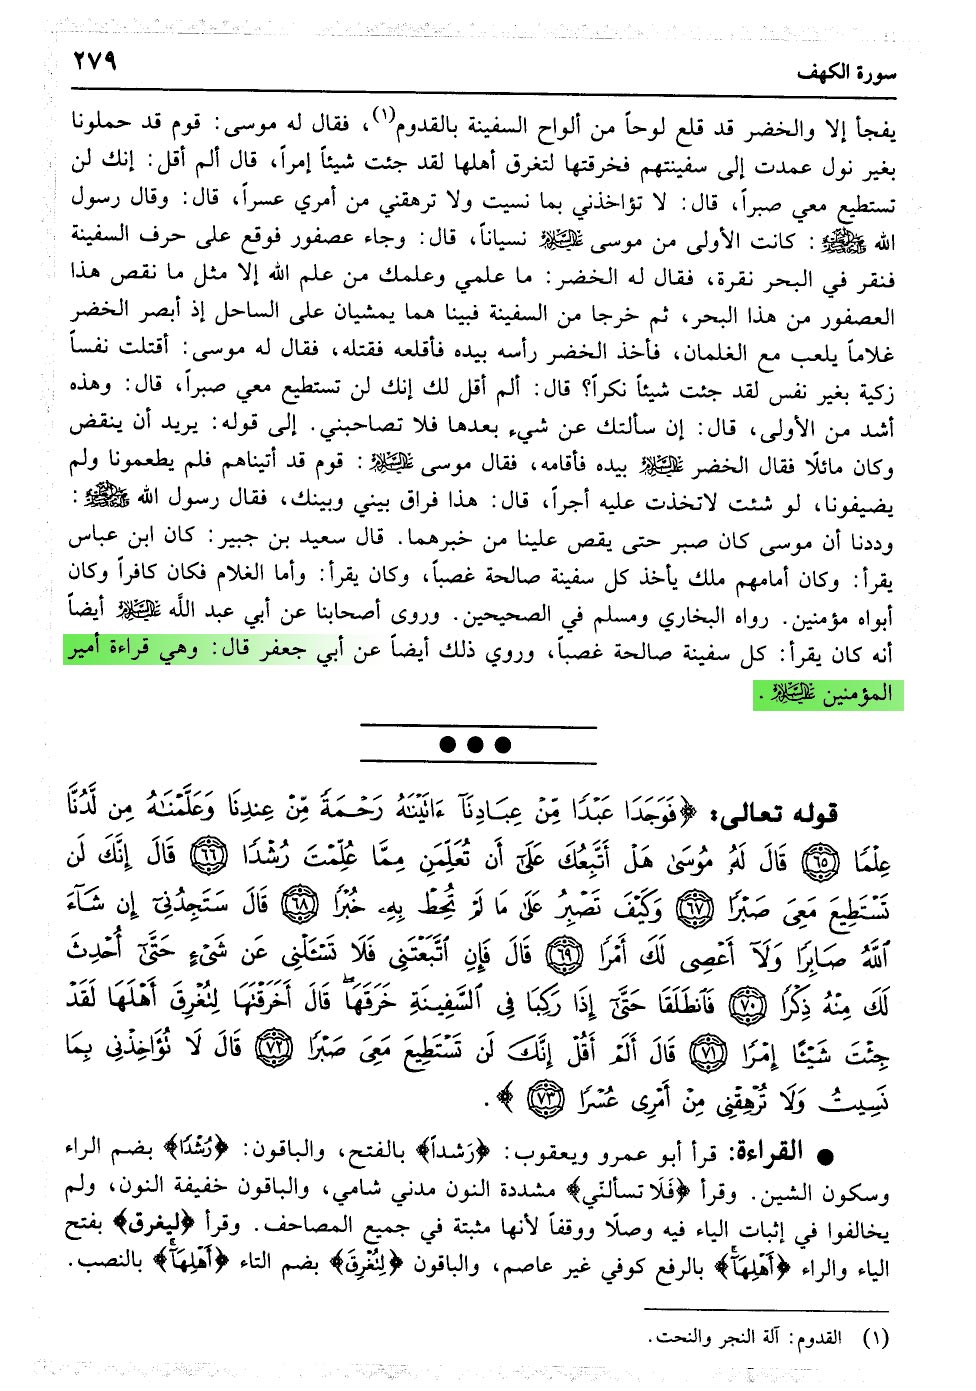 سورة الكهف
٢٧٩
يفجأ إلا والخضر قد قلع لوحاً من ألواح السفينة بالقدوم(١)، فقال له موسى: قوم قد حملونا
بغير نول عمدت إلى سفينتهم فخرقتها لتغرق أهلها لقد جئت شيئاً إمراً، قال ألم أقل: إنك لن
تستطيع معي صبراً، قال: لا تؤاخذني بما نسيت ولا ترهقني من أمري عسراً، قال: وقال رسول
الله ﷺ: كانت الأولى من موسى عليه السلام نسياناً، قال: وجاء عصفور فوقع على حرف السفينة
فنقر في البحر نقرة، فقال له الخضر: ما علمي وعلمك من علم الله إلا مثل ما نقص هذا
العصفور من هذا البحر، ثم خرجا من السفينة فبينا هما يمشيان على الساحل إذ أبصر الخضر
غلاماً يلعب مع الغلمان، فأخذ الخضر رأسه بيده فأقلعه فقتله، فقال له موسى: أقتلت نفساً
زكية بغير نفس لقد جئت شيئاً نكراً؟ قال: ألم أقل لك إنك لن تستطيع معي صبراً، قال: وهذه
أشد من الأولى، قال: إن سألتك عن شيء بعدها فلا تصاحبني. إلى قوله: يريد أن ينقض
وكان مائلًا فقال الخضر عليه السلام بيده فأقامه، فقال موسى عليه السلام: قوم قد أتيناهم فلم يطعمونا ولم
يضيفونا، لو شئت لاتخذت عليه أجراً، قال: هذا فراق بيني وبينك، فقال رسول الله ﷺ:
وددنا أن موسى كان صبر حتى يقص علينا من خبرهما. قال سعيد بن جبير: كان ابن عباس
يقرأ: وكان أمامهم ملك يأخذ كل سفينة صالحة غصباً، وكان يقرأ: وأما الغلام فكان كافراً وكان
أبواه مؤمنين. رواه البخاري ومسلم في الصحيحين. وروى أصحابنا عن أبي عبد اللَّه عليه السلام أيضاً
أنه كان يقرأ: كل سفينة صالحة غصباً، وروي ذلك أيضاً عن أبي جعفر قال: وهي قراءة أمير
المؤمنين عليه السلام.
قوله تعالى: ﴿فَوَجَدَا عَبْدًا مِّنْ عِبَادِنَآ ءَاتَيْنَٰهُ رَحْمَةً مِّنْ عِندِنَا وَعَلَّمْنَٰهُ مِن لَّدُنَّا
عِلْمًا ٦٥ قَالَ لَهُۥ مُوسَىٰ هَلْ أَتَّبِعُكَ عَلَىٰٓ أَن تُعَلِّمَنِ مِمَّا عُلِّمْتَ رُشْدًا ٦٦ قَالَ إِنَّكَ لَن
تَسْتَطِيعَ مَعِىَ صَبْرًا ٦٧ وَكَيْفَ تَصْبِرُ عَلَىٰ مَا لَمْ تُحِطْ بِهِۦ خُبْرًا ٦٨ قَالَ سَتَجِدُنِىٓ إِن شَآءَ
ٱللَّهُ صَابِرًا وَلَآ أَعْصِى لَكَ أَمْرًا ٦٩ قَالَ فَإِنِ ٱتَّبَعْتَنِى فَلَا تَسْـَٔلْنِى عَن شَىْءٍ حَتَّىٰٓ أُحْدِثَ
لَكَ مِنْهُ ذِكْرًا ٧٠ فَٱنطَلَقَا حَتَّىٰٓ إِذَا رَكِبَا فِى ٱلسَّفِينَةِ خَرَقَهَا ۖ قَالَ أَخَرَقْتَهَا لِتُغْرِقَ أَهْلَهَا لَقَدْ
جِئْتَ شَيْـًٔا إِمْرًا ٧١ قَالَ أَلَمْ أَقُلْ إِنَّكَ لَن تَسْتَطِيعَ مَعِىَ صَبْرًا ٧٢ قَالَ لَا تُؤَاخِذْنِى بِمَا
نَسِيتُ وَلَا تُرْهِقْنِى مِنْ أَمْرِى عُسْرًا ٧٣﴾.
● القراءة: قرأ أبو عمرو ويعقوب: ﴿رَشداً﴾ بالفتح، والباقون: ﴿رُشْدًا﴾ بضم الراء
وسكون الشين. وقرأ ﴿فَلَا تسألنّي﴾ مشددة النون مدني شامي، والباقون خفيفة النون، ولم
يخالفوا في إثبات الياء فيه وصلًا ووقفاً لأنها مثبتة في جميع المصاحف. وقرأ ﴿ليغرق﴾ بفتح
الياء والراء ﴿أَهْلِهَآ﴾ بالرفع كوفي غير عاصم، والباقون ﴿لِتُغْرِقَ﴾ بضم التاء ﴿أَهْلِهَآ﴾ بالنصب.
(١) القدوم: آلة النجر والنحت.